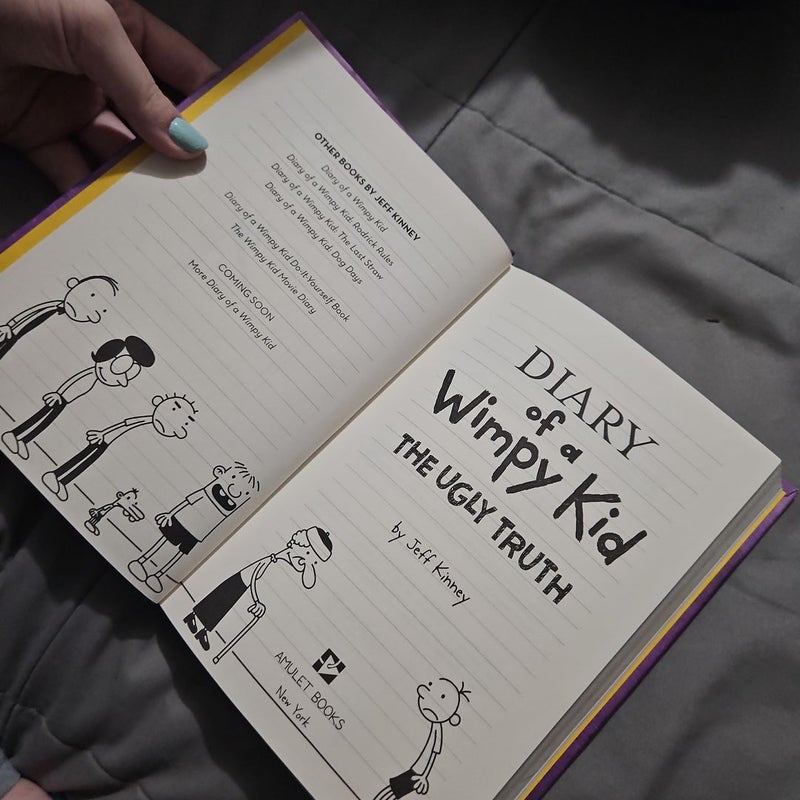 OTHER BOOKS BY JEFF KINNEY
Diary of a Wimpy Kid
Diary of a Wimpy Kid: Rodrick Rules
Diary of a Wimpy Kid: The Last Straw
Diary of a Wimpy Kid: Dog Days
Diary of a Wimpy Kid Do-It-Yourself Book
The Wimpy Kid Movie Diary
COMING SOON
More Diary of a Wimpy Kid
DIARY
of a
Wimpy Kid
THE UGLY TRUTH
by Jeff Kinney
AMULET BOOKS
New York